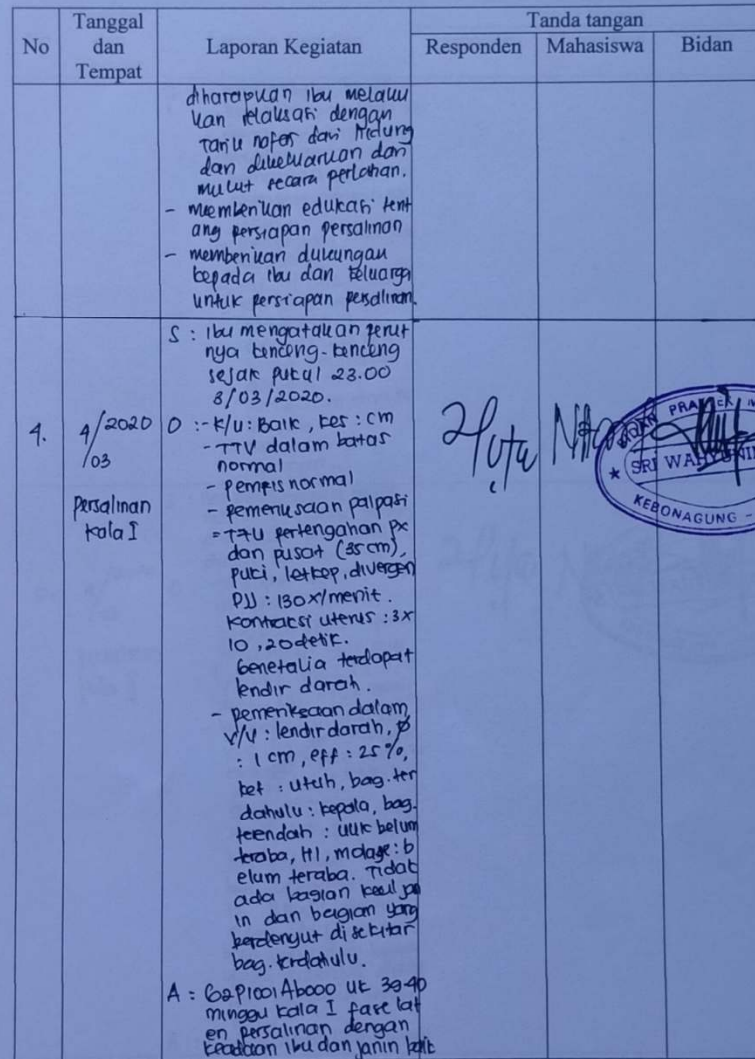 No
Tanggal
dan
Tempat
Laporan Kegiatan
Tanda tangan
Responden
Mahasiswa
Bidan
diharapkan ibu melaku
kan relaksasi dengan
tarik nafas dari hidung
dan dikeluarkan dari
mulut secara perlahan.
- memberikan edukasi tent
ang persiapan persalinan
- memberikan dukungan
kepada ibu dan keluarga
untuk persiapan persalinan.
4.
4/2020
/03
Persalinan
kala I
S : Ibu mengatakan perut
nya kenceng-kenceng
sejak pukul 23.00
3/03/2020.
O :- K/U : Baik, kes : cm
- TTV dalam batas
normal
- pemfis normal
- pemeriksaan palpasi
= TFU pertengahan px
dan pusat (35 cm),
puki, letkep, divergen
DJJ : 130 x/menit.
Kontraksi uterus : 3x
10 , 20 detik.
Genetalia terdapat
lendir darah.
- pemeriksaan dalam
V/V : lendir darah, φ
: 1 cm, eff : 25 %,
ket : utuh, bag. ter
dahulu : kepala, bag.
terendah : UUK belum
teraba, HI, molage : b
elum teraba. Tidak
ada bagian kecil jan
in dan bagian yang
berdenyut di sekitar
bag. terdahulu.
A : G2P1001Ab000 UK 39-40
minggu kala I fase lat
en persalinan dengan
keadaan ibu dan janin baik
BIDAN PRA
SRI WAHYUNI
KEBONAGUNG -